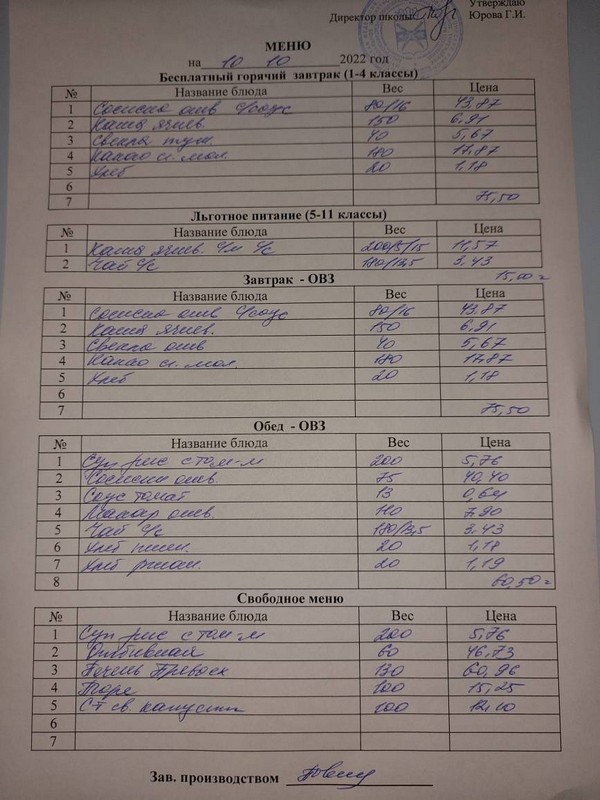 Утверждаю
Директор школы Юрова Г.И.
МЕНЮ
на 10 10 2022 год
Бесплатный горячий завтрак (1-4 классы)
№ Название блюда Вес Цена
1 Сосиска отв с/соус 80/16 43,87
2 Каша ячнев. 150 6,91
3 Свекла туш. 40 5,67
4 Какао с мол. 180 17,87
5 Хлеб 20 1,18
6
7 75,50
Льготное питание (5-11 классы)
№ Название блюда Вес Цена
1 Каша ячнев. с/м с/с 200/5/15 11,57
2 Чай с/с 180/13,5 3,43
15,00
Завтрак - ОВЗ
№ Название блюда Вес Цена
1 Сосиска отв с/соус 80/16 43,87
2 Каша ячнев. 150 6,91
3 Свекла отв 40 5,67
4 Какао с мол. 180 17,87
5 Хлеб 20 1,18
6
7 75,50
Обед - ОВЗ
№ Название блюда Вес Цена
1 Суп рис с том-м 200 5,76
2 Сосиски отв. 75 40,40
3 Соус томат 13 0,64
4 Макар отв. 110 7,90
5 Чай с/с 180/13,5 3,43
6 Хлеб пшен. 20 1,18
7 Хлеб ржан. 20 1,19
8 60,50
Свободное меню
№ Название блюда Вес Цена
1 Суп рис с том-м 200 5,76
2 Отбивная 60 46,73
3 Печень 130 60,96
4 Пюре 100 15,25
5 С-т св. капусты 100 12,10
6
7
Зав. производством